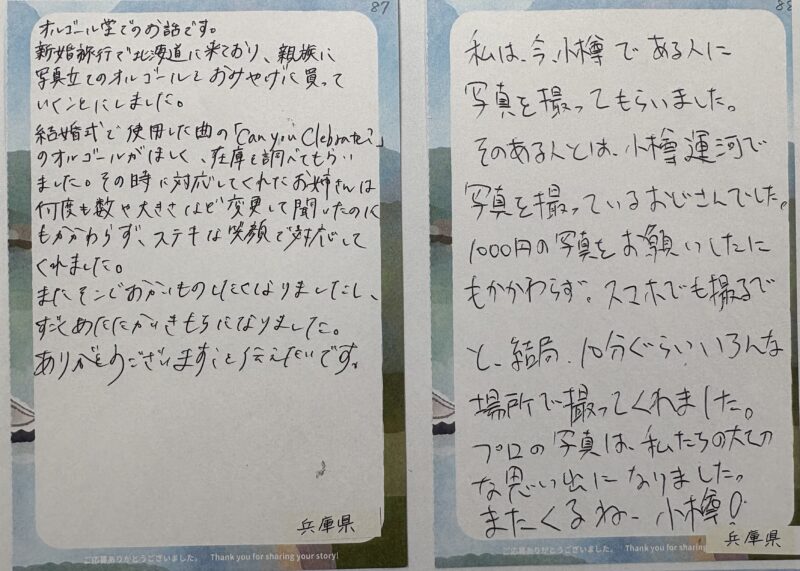 87
オルゴール堂でのお話です。
新婚旅行で北海道に来ており、親族に
写真立てのオルゴールを おみやげに買って
いくことにしました。
結婚式で使用した曲の「Can you Clebrate?」
のオルゴールがほしく、在庫を調べてもらい
ました。その時に対応してくれたお姉さんは
何度も数や大きさなど変更して聞いたのに
もかかわらず、ステキな笑顔で対応して
くれました。
またそこでおかいものしたくなりましたし、
すごくあたたかいきもちになりました。
ありがとうございます、と伝えたいです。
兵庫県
ご応募ありがとうございました。 Thank you for sharing your story!
88
私は、今、小樽である人に
写真を撮ってもらいました。
そのある人とは、小樽運河で
写真を撮っているおじさんでした。
1000円の写真をお願いしたに
もかかわらず、スマホでも撮るで
と、結局、10分ぐらいいろんな
場所で撮ってくれました。
プロの写真は、私たちの大切
な思い出になりました。
またくるねー 小樽!
兵庫県
ご応募ありがとうございました。 Thank you for sharing your